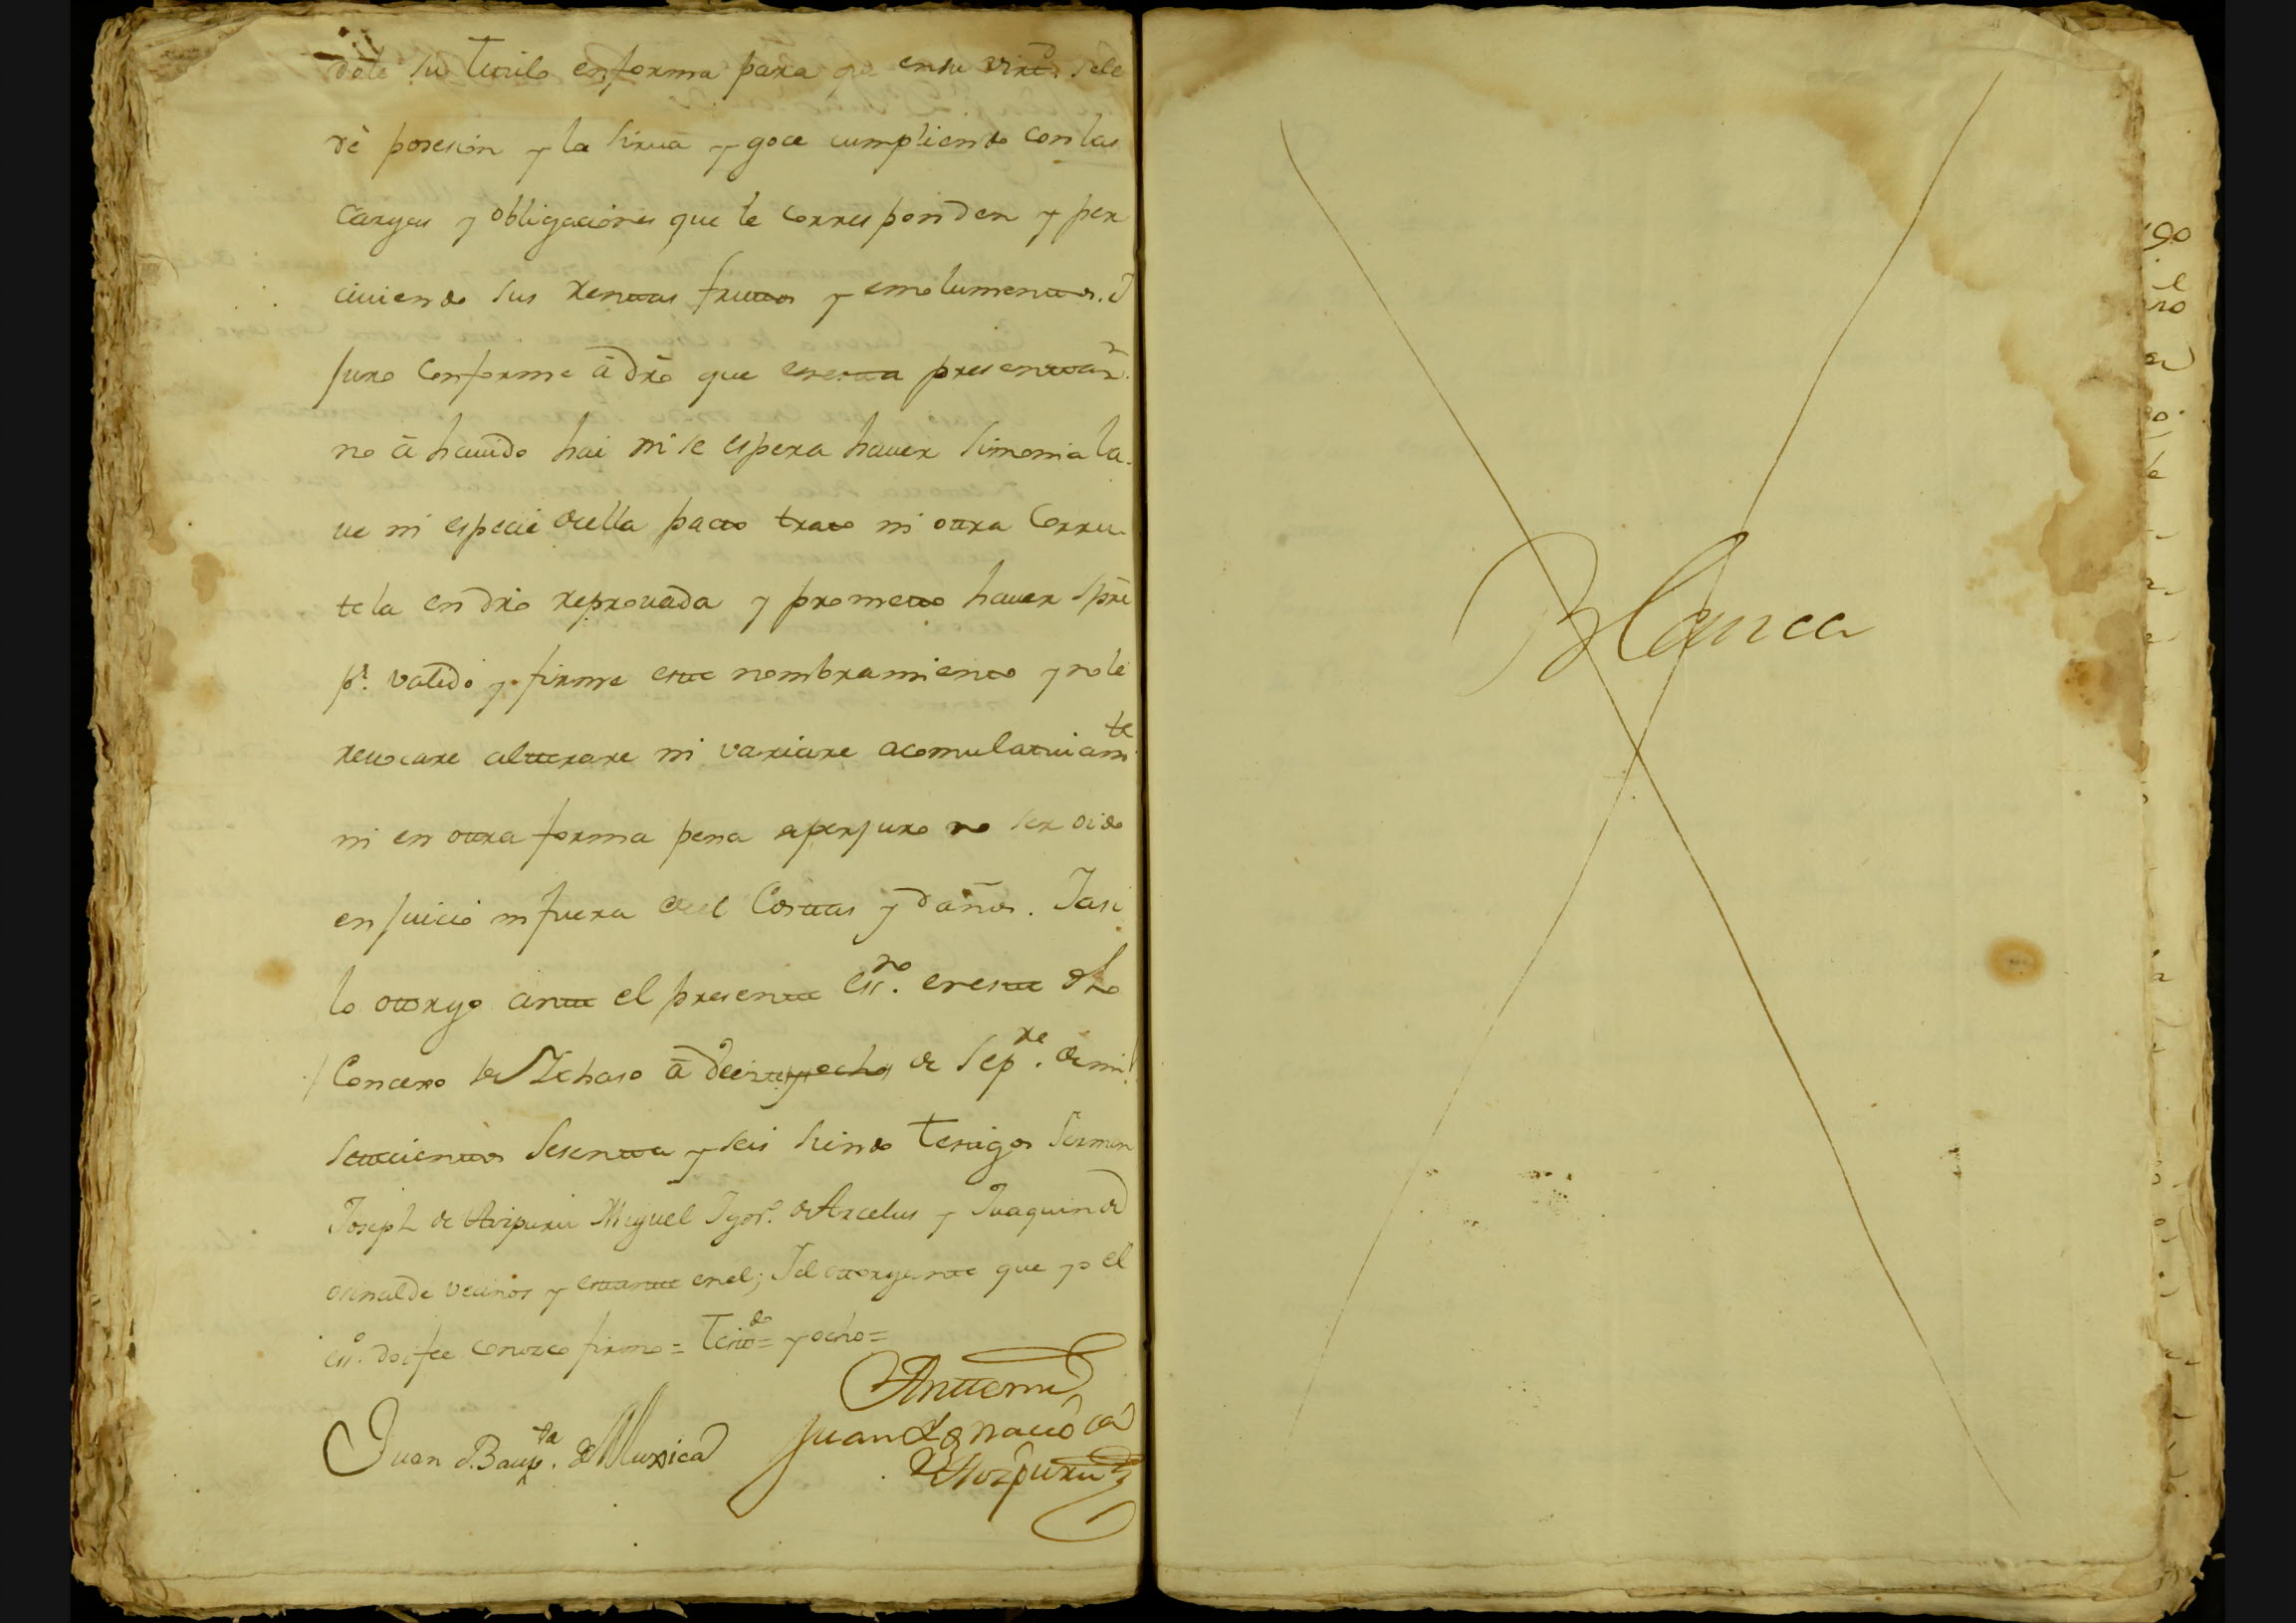 dole su titulo en forma para qe en su virtd. sele
dè posesion y la sirua y goce cumpliendo con las
cargas y obligaciones que le corresponden y per
ciuiendo sus rentas frutos y emolumentos. J
juro conforme â dr̃o que en esta presentaon.
no â hauido hai ni se espera hauer simonia la
ue ni especie de ella pacto trato ni otra Corru
tela en dr̃o reprouada y prometo hauer spr̃e
pr. valido y firme este nombramiento y no le
reuocare alterare ni variare acomulatiuiamte
ni en otra forma pena de perjuro no ser oido
en juicio ni fuera de el Costas y daños. Jasi
lo otorgo ante el presente essno. en este dho
Concejo de Ichaso â dieztegyocho de Sepre. de mil
setecientos sesenta y seis siendo testigos Fermin
Joseph de Aizpuru Miguel Ygno. de Arcelus y Juaquin de
Orinalde vecinos y estante en el; J el otorgante que yo el
esso. doi fee conozco firmo = testdo = y ocho =
Antemi
Juan Bauptta. de Muxica
Juan Ygnacio de
Aizpuru
Blanca